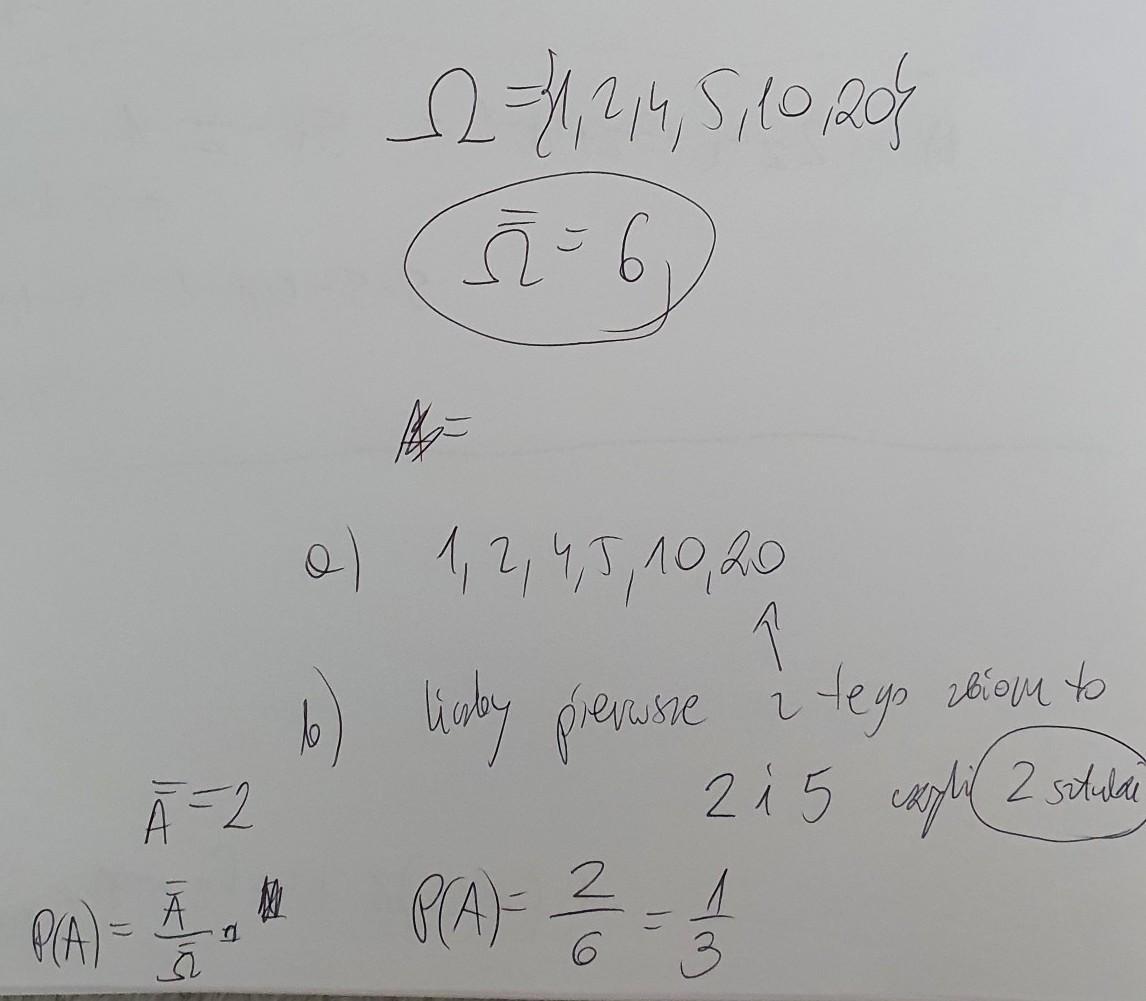 Ω = {1, 2, 4, 5, 10, 20}
Ω̿ = 6
=
a) 1, 2, 4, 5, 10, 20
↑
b) liczby pierwsze z tego zbioru to
2 i 5 czyli 2 sztuki
A̿ = 2
P(A) = A̿/Ω̿ =
P(A) = 2/6 = 1/3